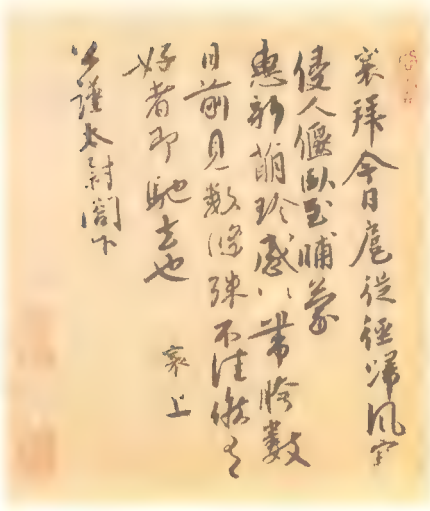 襄拜今日扈從徑歸風宇
侵人偃臥至晡蒙
惠新萠珍感〻帶胯數
日前見數條殊不佳候有
好者即馳去也
襄上
公謹太尉閤下